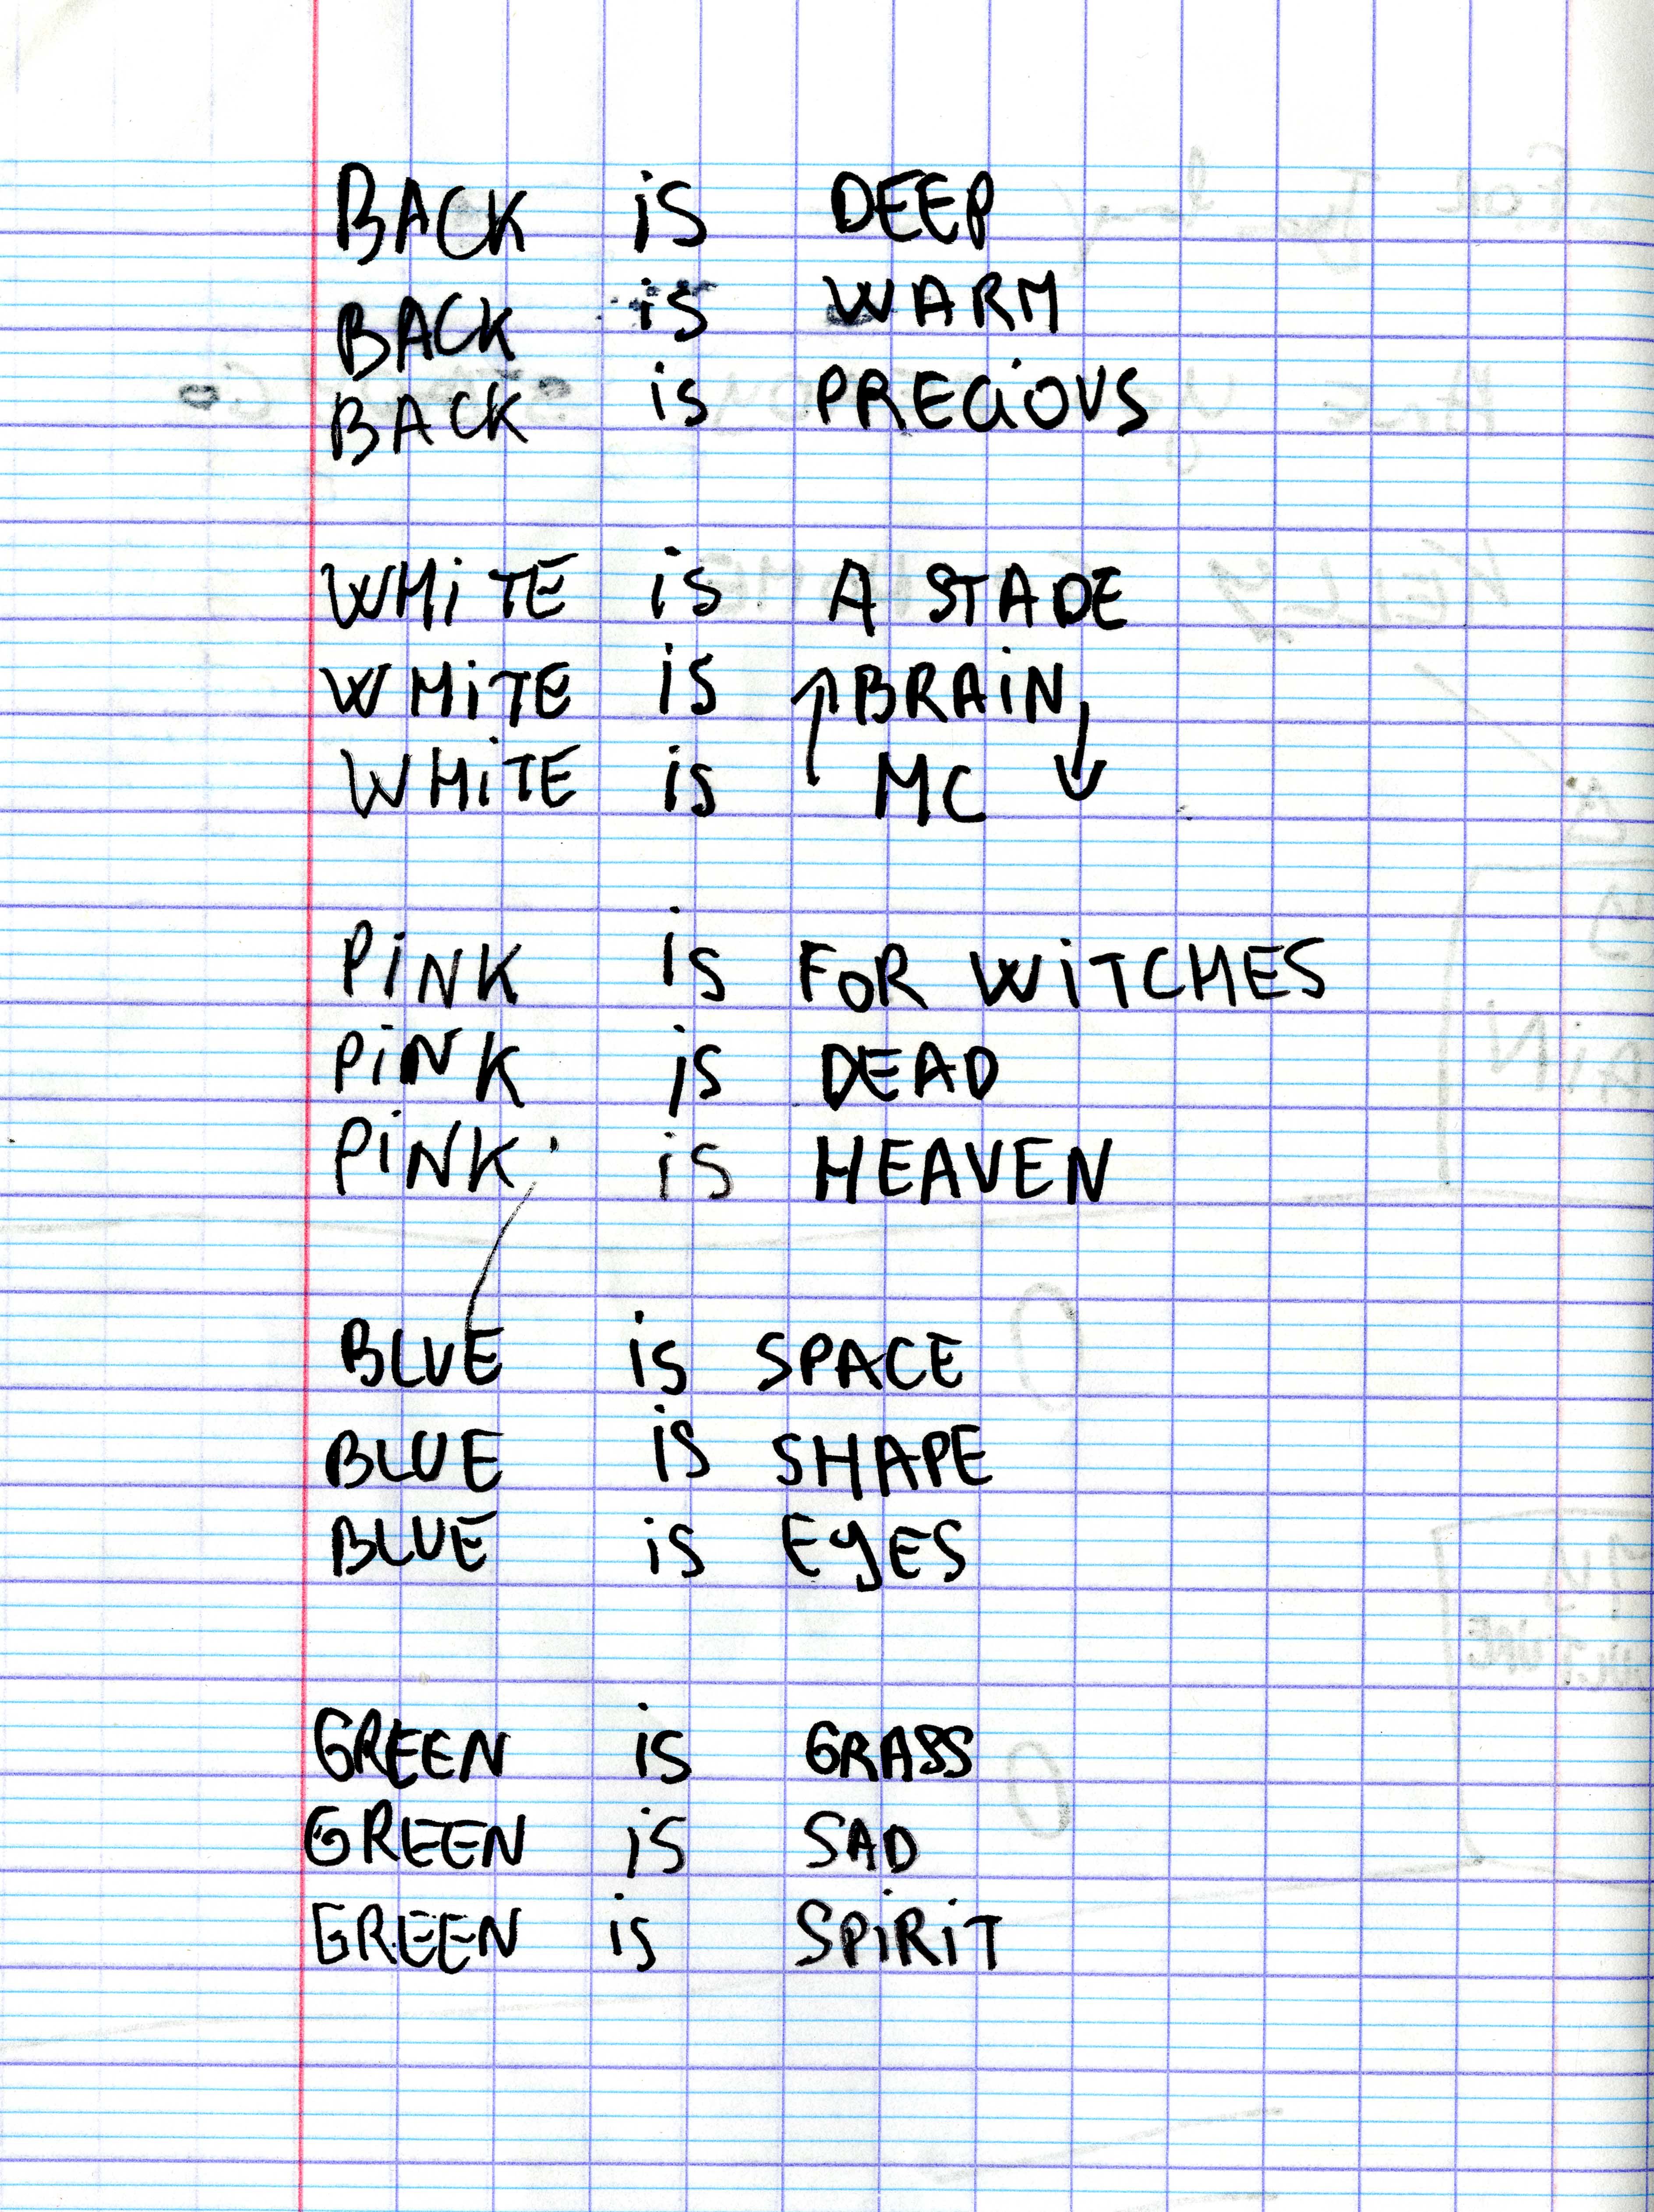 BACK is DEEP
BACK is WARM
BACK is PRECiOUS
WHiTE is A STADE
WHiTE is ↑ BRAiN ↓
WHiTE is MC
PiNK is FOR WiTCHES
PiNK is DEAD
PiNK is HEAVEN
BLUE is SPACE
BLUE is SHAPE
BLUE is EyES
GREEN is GRASS
GREEN is SAD
GREEN is SPiRiT